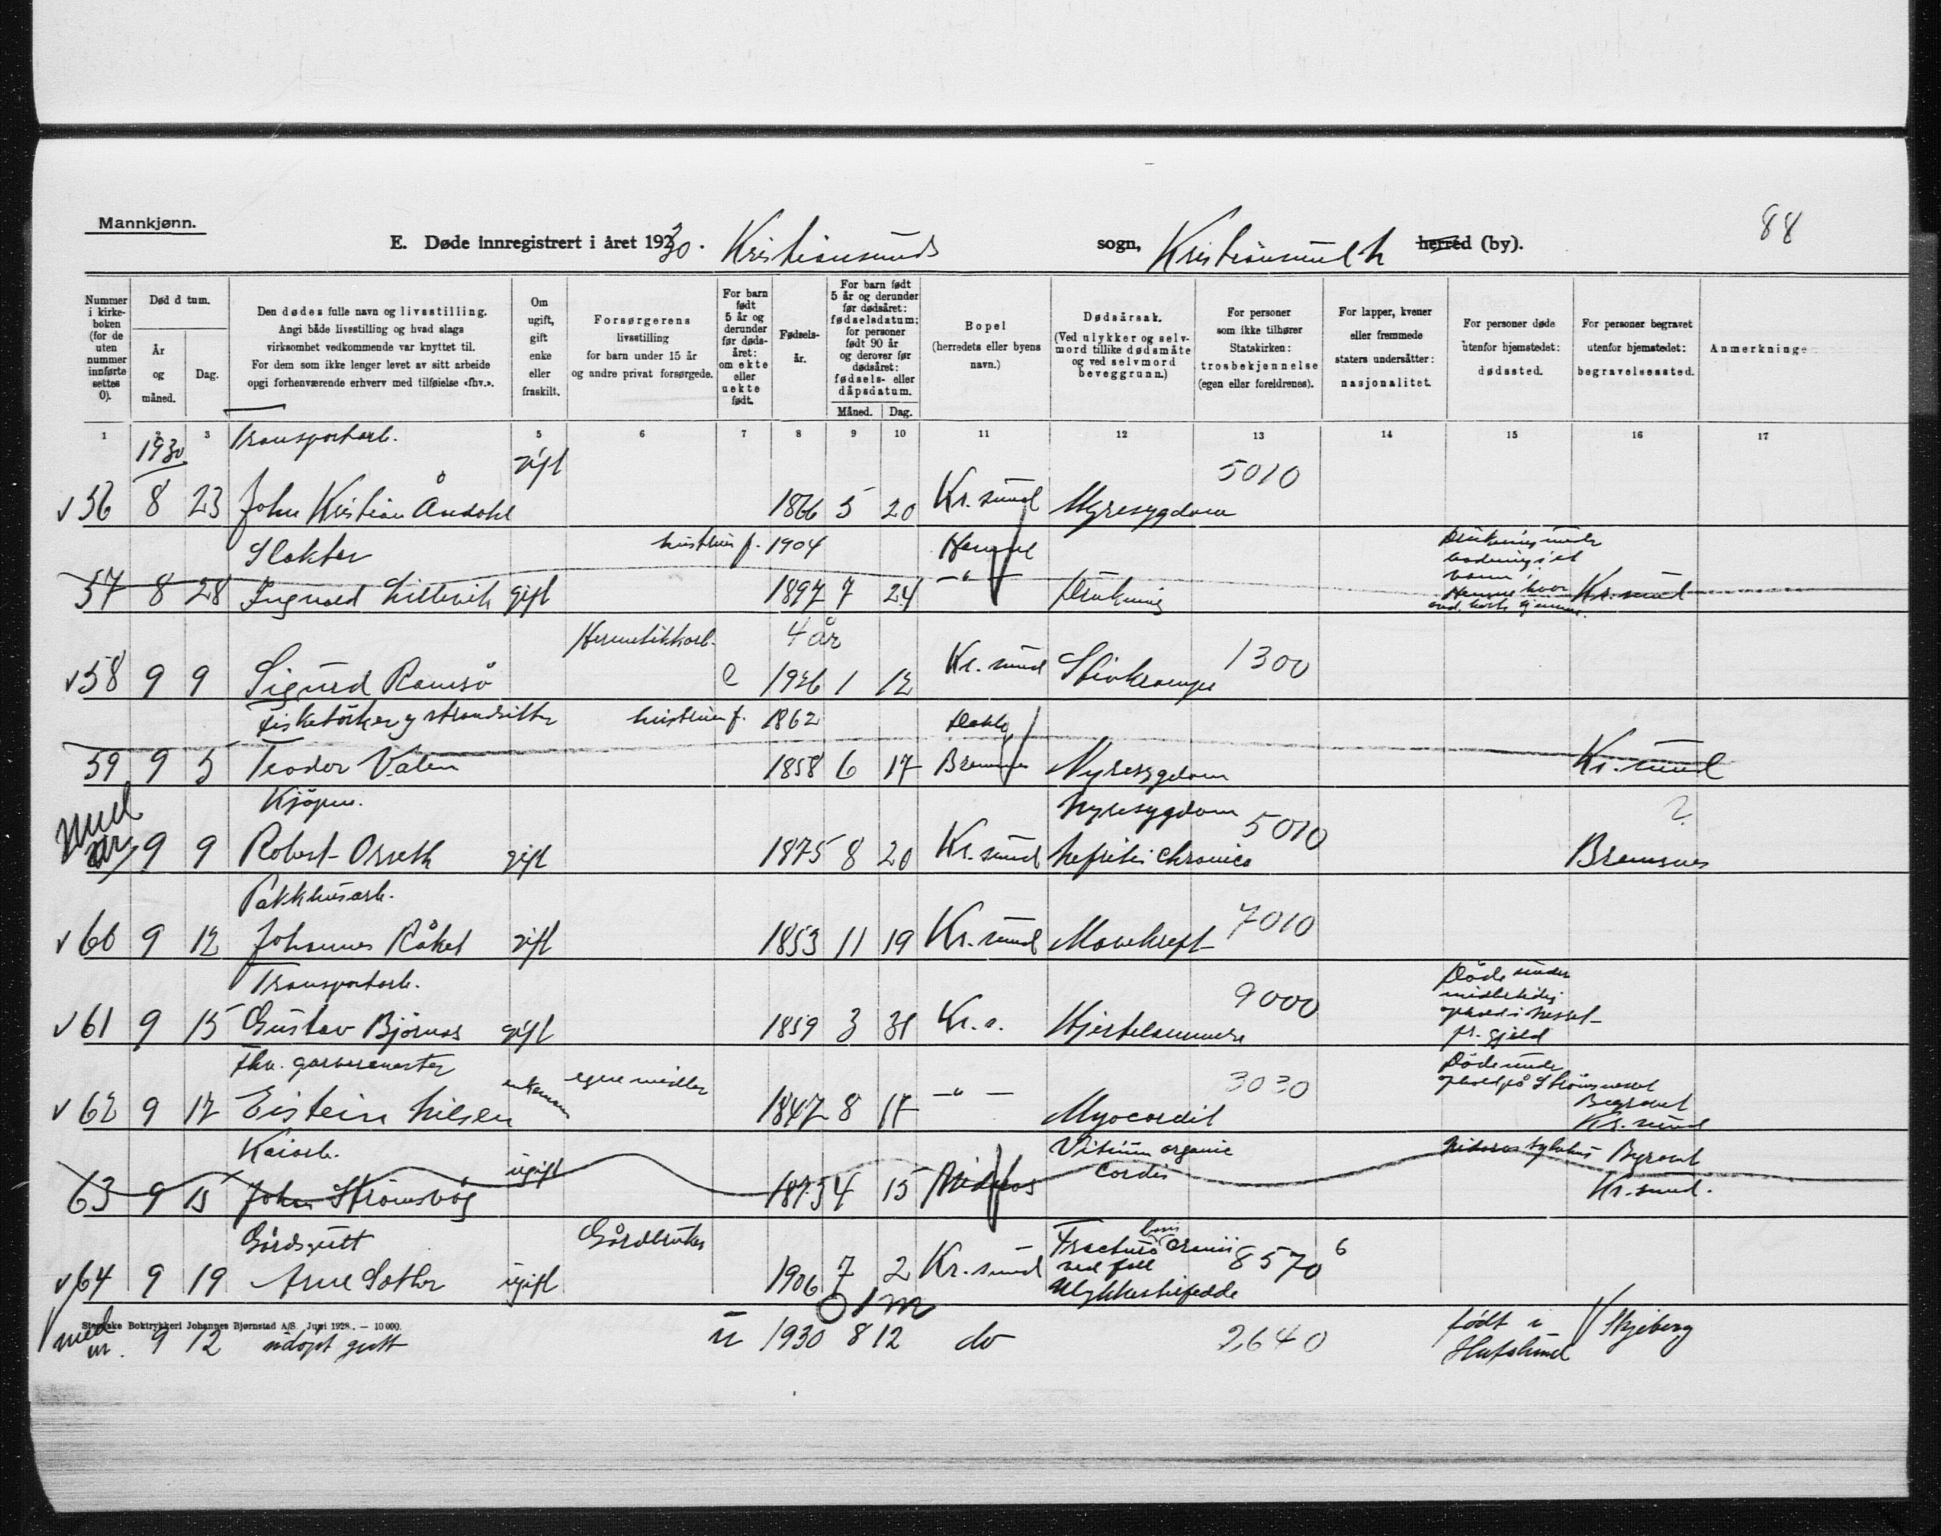 Mannkjønn.
88
E. Døde innregistrert i året 1930. Kristiansunds sogn, Kristiansund herred (by).
Nummer i kirkeboken (for de uten nummer innførte settes 0).
Død d tum.
År og måned.
Dag.
Den dødes fulle navn og livsstilling.
Angi både livsstilling og hvad slags
virksomhet vedkommende var knyttet til.
For dem som ikke lenger levet av sitt arbeide
opgi forhenværende erhverv med tilføielse «fhv.».
Om ugift, gift enke eller fraskilt.
Forsørgerens livsstilling for barn under 15 år og andre privat forsørgede.
For barn født 5 år og derunder før dødsåret: om ekte eller uekte født.
Fødselsår.
For barn født 5 år og derunder før dødsåret: fødselsdatum; for personer født 90 år og derover før dødsåret: fødsels- eller dåpsdatum.
Måned. Dag.
Bopel (herredets eller byens navn.)
Dødsårsak. (Ved ulykker og selvmord tillike dødsmåte og ved selvmord beveggrunn.)
For personer som ikke tilhører Statskirken: trosbekjennelse (egen eller foreldrenes).
For lapper, kvener eller fremmede staters undersåtter: nasjonalitet.
For personer døde utenfor hjemstedet: dødssted.
For personer begravet utenfor hjemstedet: begravelsessted.
Anmerkninge
1 3 5 6 7 8 9 10 11 12 13 14 15 16 17
1930 Transportarb.
gift 5010
v 56 8 23 John Kristian Åndahl 1866 5 20 Kr. sund Nyresygdom
Slakter hustru f. 1904
57 8 28 Ingvald Lillevik gift 1897 7 24 -"- Drukning Kr. sund
Hermetikkarb. 4 år
v 58 9 9 Sigurd Ramsø e 1926 1 12 Kr. sund Stivkrampe 1300
Fisketørker og strandsitter hustru f. 1862
59 9 5 Teodor Valen 1858 6 17 Bremsnes Nyresygdom Kr. sund
Kjøpm. Nyresygdom 5010 ?
9 9 Robert Orseth gift 1875 8 20 Kr. sund Nefritis chronica Bremsnes
Pakkhusarb.
v 60 9 12 Johannes Råket gift 1853 11 19 Kr. sund Mavekreft 7010
Transportarb. Døde under
midlertidig
v 61 9 15 Gustav Bjørnås gift 1859 3 31 Kr. s. Hjertelammelse 9000
fhv. garvermester enkemann egne midler 3030 Døde under
v 62 9 17 Eistein Nilsen 1847 8 17 -"- Myocardit Begravet Kr. sund
Kaiarb. ugift Vitium organic cordis Begravet
63 9 15 John Strømsvåg 1875 4 15 Kr. sund.
Gårdsgutt Gårdbruker Fractura basis cranii
v 64 9 19 Arne Sæther ugift 1906 7 2 Kr. sund ved fall 8570 6
Ulykkestilfelde
0 1 m
Steenske Boktrykkeri Johannes Bjørnstad A/S. Juni 1928. — 10 000.
9 12 udøpt gutt u 1930 8 12 do 2640 født i Hafslund Skjeberg